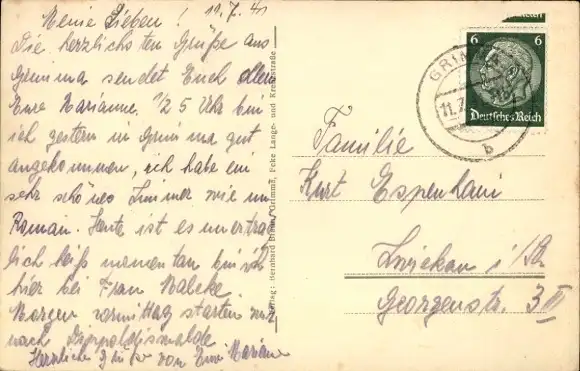 Meine Lieben! 11.7.41
Die herzlichsten Grüße aus
Grimma sendet Euch allen
Eure Marianne. 1/2 5 Uhr bin
ich gestern in Grimma gut
angekommen, ich habe ein
sehr schönes Zimmer wie im
Roman. Heute ist es unerträg
lich heiß momentan bin ich
hier bei Frau
Morgen vormittag starten wir
nach Dippoldiswalde
Herzliche Grüße von Eurer Marianne
Verlag: Bernhard Grimma, Ecke Lange- und Kreuzstraße
6 6
Deutsches Reich
GRIMMA
11.7.
b
Familie
Kurt Espenhain
Zwickau i/Sa
Georgenstr. 3 II